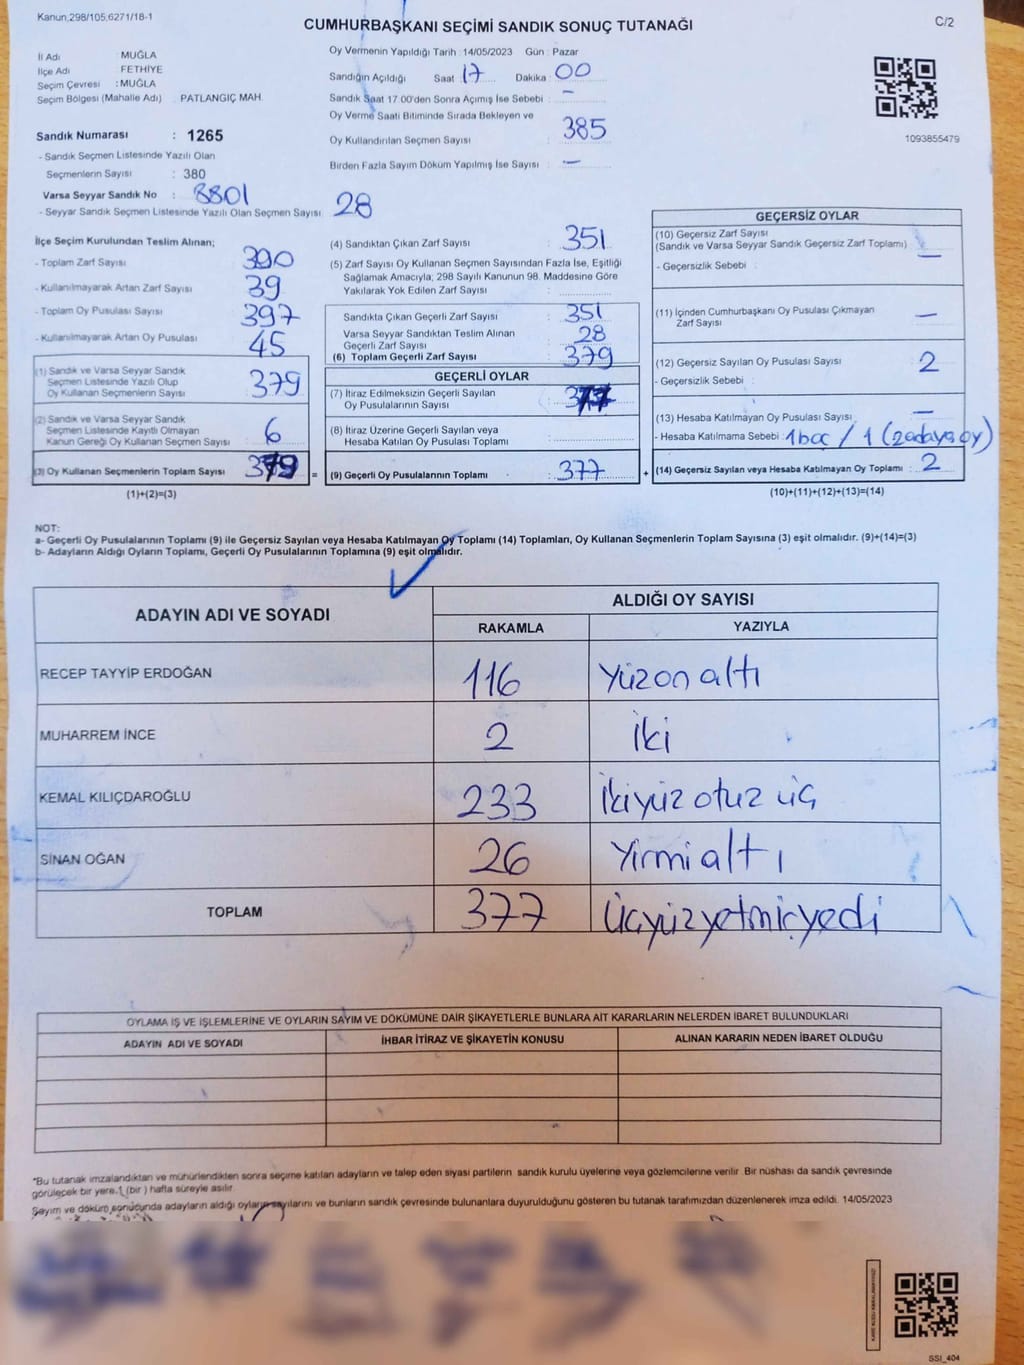 Kanun,298/105,6271/18-1
CUMHURBAŞKANI SEÇİMİ SANDIK SONUÇ TUTANAĞI
C/2
İl Adı : MUĞLA
İlçe Adı : FETHİYE
Seçim Çevresi : MUĞLA
Seçim Bölgesi (Mahalle Adı) PATLANGIÇ MAH.
Sandık Numarası : 1265
- Sandık Seçmen Listesinde Yazılı Olan
Seçmenlerin Sayısı : 380
Varsa Seyyar Sandık No : 8801
- Seyyar Sandık Seçmen Listesinde Yazılı Olan Seçmen Sayısı 28
Oy Vermenin Yapıldığı Tarih : 14/05/2023 Gün : Pazar
Sandığın Açıldığı Saat : 17 Dakika : 00
Sandık Saat 17.00'den Sonra Açımış İse Sebebi : -
Oy Verme Saati Bitiminde Sırada Bekleyen ve
Oy Kullandırılan Seçmen Sayısı : 385
Birden Fazla Sayım Döküm Yapılmış İse Sayısı : -
1093855479
İlçe Seçim Kurulundan Teslim Alınan;
- Toplam Zarf Sayısı 390
- Kullanılmayarak Artan Zarf Sayısı 39
- Toplam Oy Pusulası Sayısı 397
- Kullanılmayarak Artan Oy Pusulası 45
(1) Sandık ve Varsa Seyyar Sandık
Seçmen Listesinde Yazılı Olup
Oy Kullanan Seçmenlerin Sayısı 379
(2) Sandık ve Varsa Seyyar Sandık
Seçmen Listesinde Kayıtlı Olmayan
Kanun Gereği Oy Kullanan Seçmen Sayısı 6
(3) Oy Kullanan Seçmenlerin Toplam Sayısı 379 =
(1)+(2)=(3)
(4) Sandıktan Çıkan Zarf Sayısı : 351
(5) Zarf Sayısı Oy Kullanan Seçmen Sayısından Fazla İse, Eşitliği
Sağlamak Amacıyla; 298 Sayılı Kanunun 98. Maddesine Göre
Yakılarak Yok Edilen Zarf Sayısı :
Sandıkta Çıkan Geçerli Zarf Sayısı : 351
Varsa Seyyar Sandıktan Teslim Alınan
Geçerli Zarf Sayısı : 28
(6) Toplam Geçerli Zarf Sayısı : 379
GEÇERLİ OYLAR
(7) İtiraz Edilmeksizin Geçerli Sayılan
Oy Pusulalarının Sayısı : 377
(8) İtiraz Üzerine Geçerli Sayılan veya
Hesaba Katılan Oy Pusulası Toplamı :
(9) Geçerli Oy Pusulalarının Toplamı : 377 +
GEÇERSİZ OYLAR
(10) Geçersiz Zarf Sayısı
(Sandık ve Varsa Seyyar Sandık Geçersiz Zarf Toplamı) : -
- Geçersizlik Sebebi :
(11) İçinden Cumhurbaşkanı Oy Pusulası Çıkmayan
Zarf Sayısı : -
(12) Geçersiz Sayılan Oy Pusulası Sayısı : 2
- Geçersizlik Sebebi :
(13) Hesaba Katılmayan Oy Pusulası Sayısı : -
- Hesaba Katılmama Sebebi : 1 boş / 1 (2 adaya oy)
(14) Geçersiz Sayılan veya Hesaba Katılmayan Oy Toplamı : 2
(10)+(11)+(12)+(13)=(14)
NOT:
a- Geçerli Oy Pusulalarının Toplamı (9) ile Geçersiz Sayılan veya Hesaba Katılmayan Oy Toplamı (14) Toplamları, Oy Kullanan Seçmenlerin Toplam Sayısına (3) eşit olmalıdır. (9)+(14)=(3)
b- Adayların Aldığı Oyların Toplamı, Geçerli Oy Pusulalarının Toplamına (9) eşit olmalıdır.
ADAYIN ADI VE SOYADI
ALDIĞI OY SAYISI
RAKAMLA YAZIYLA
RECEP TAYYİP ERDOĞAN 116 Yüzonaltı
MUHARREM İNCE 2 İki
KEMAL KILIÇDAROĞLU 233 İkiyüz otuz üç
SİNAN OĞAN 26 Yirmialtı
TOPLAM 377 Üçyüzyetmişyedi
OYLAMA İŞ VE İŞLEMLERİNE VE OYLARIN SAYIM VE DÖKÜMÜNE DAİR ŞİKAYETLERLE BUNLARA AİT KARARLARIN NELERDEN İBARET BULUNDUKLARI
ADAYIN ADI VE SOYADI İHBAR İTİRAZ VE ŞİKAYETİN KONUSU ALINAN KARARIN NEDEN İBARET OLDUĞU
*Bu tutanak imzalandıktan ve mühürlendikten sonra seçime katılan adayların ve talep eden siyasi partilerin sandık kurulu üyelerine veya gözlemcilerine verilir. Bir nüshası da sandık çevresinde
görülecek bir yere,1 (bir ) hafta süreyle asılır.
Sayım ve döküm sonucunda adayların aldığı oyların sayılarını ve bunların sandık çevresinde bulunanlara duyurulduğunu gösteren bu tutanak tarafımızdan düzenlenerek imza edildi. 14/05/2023
SSI_404